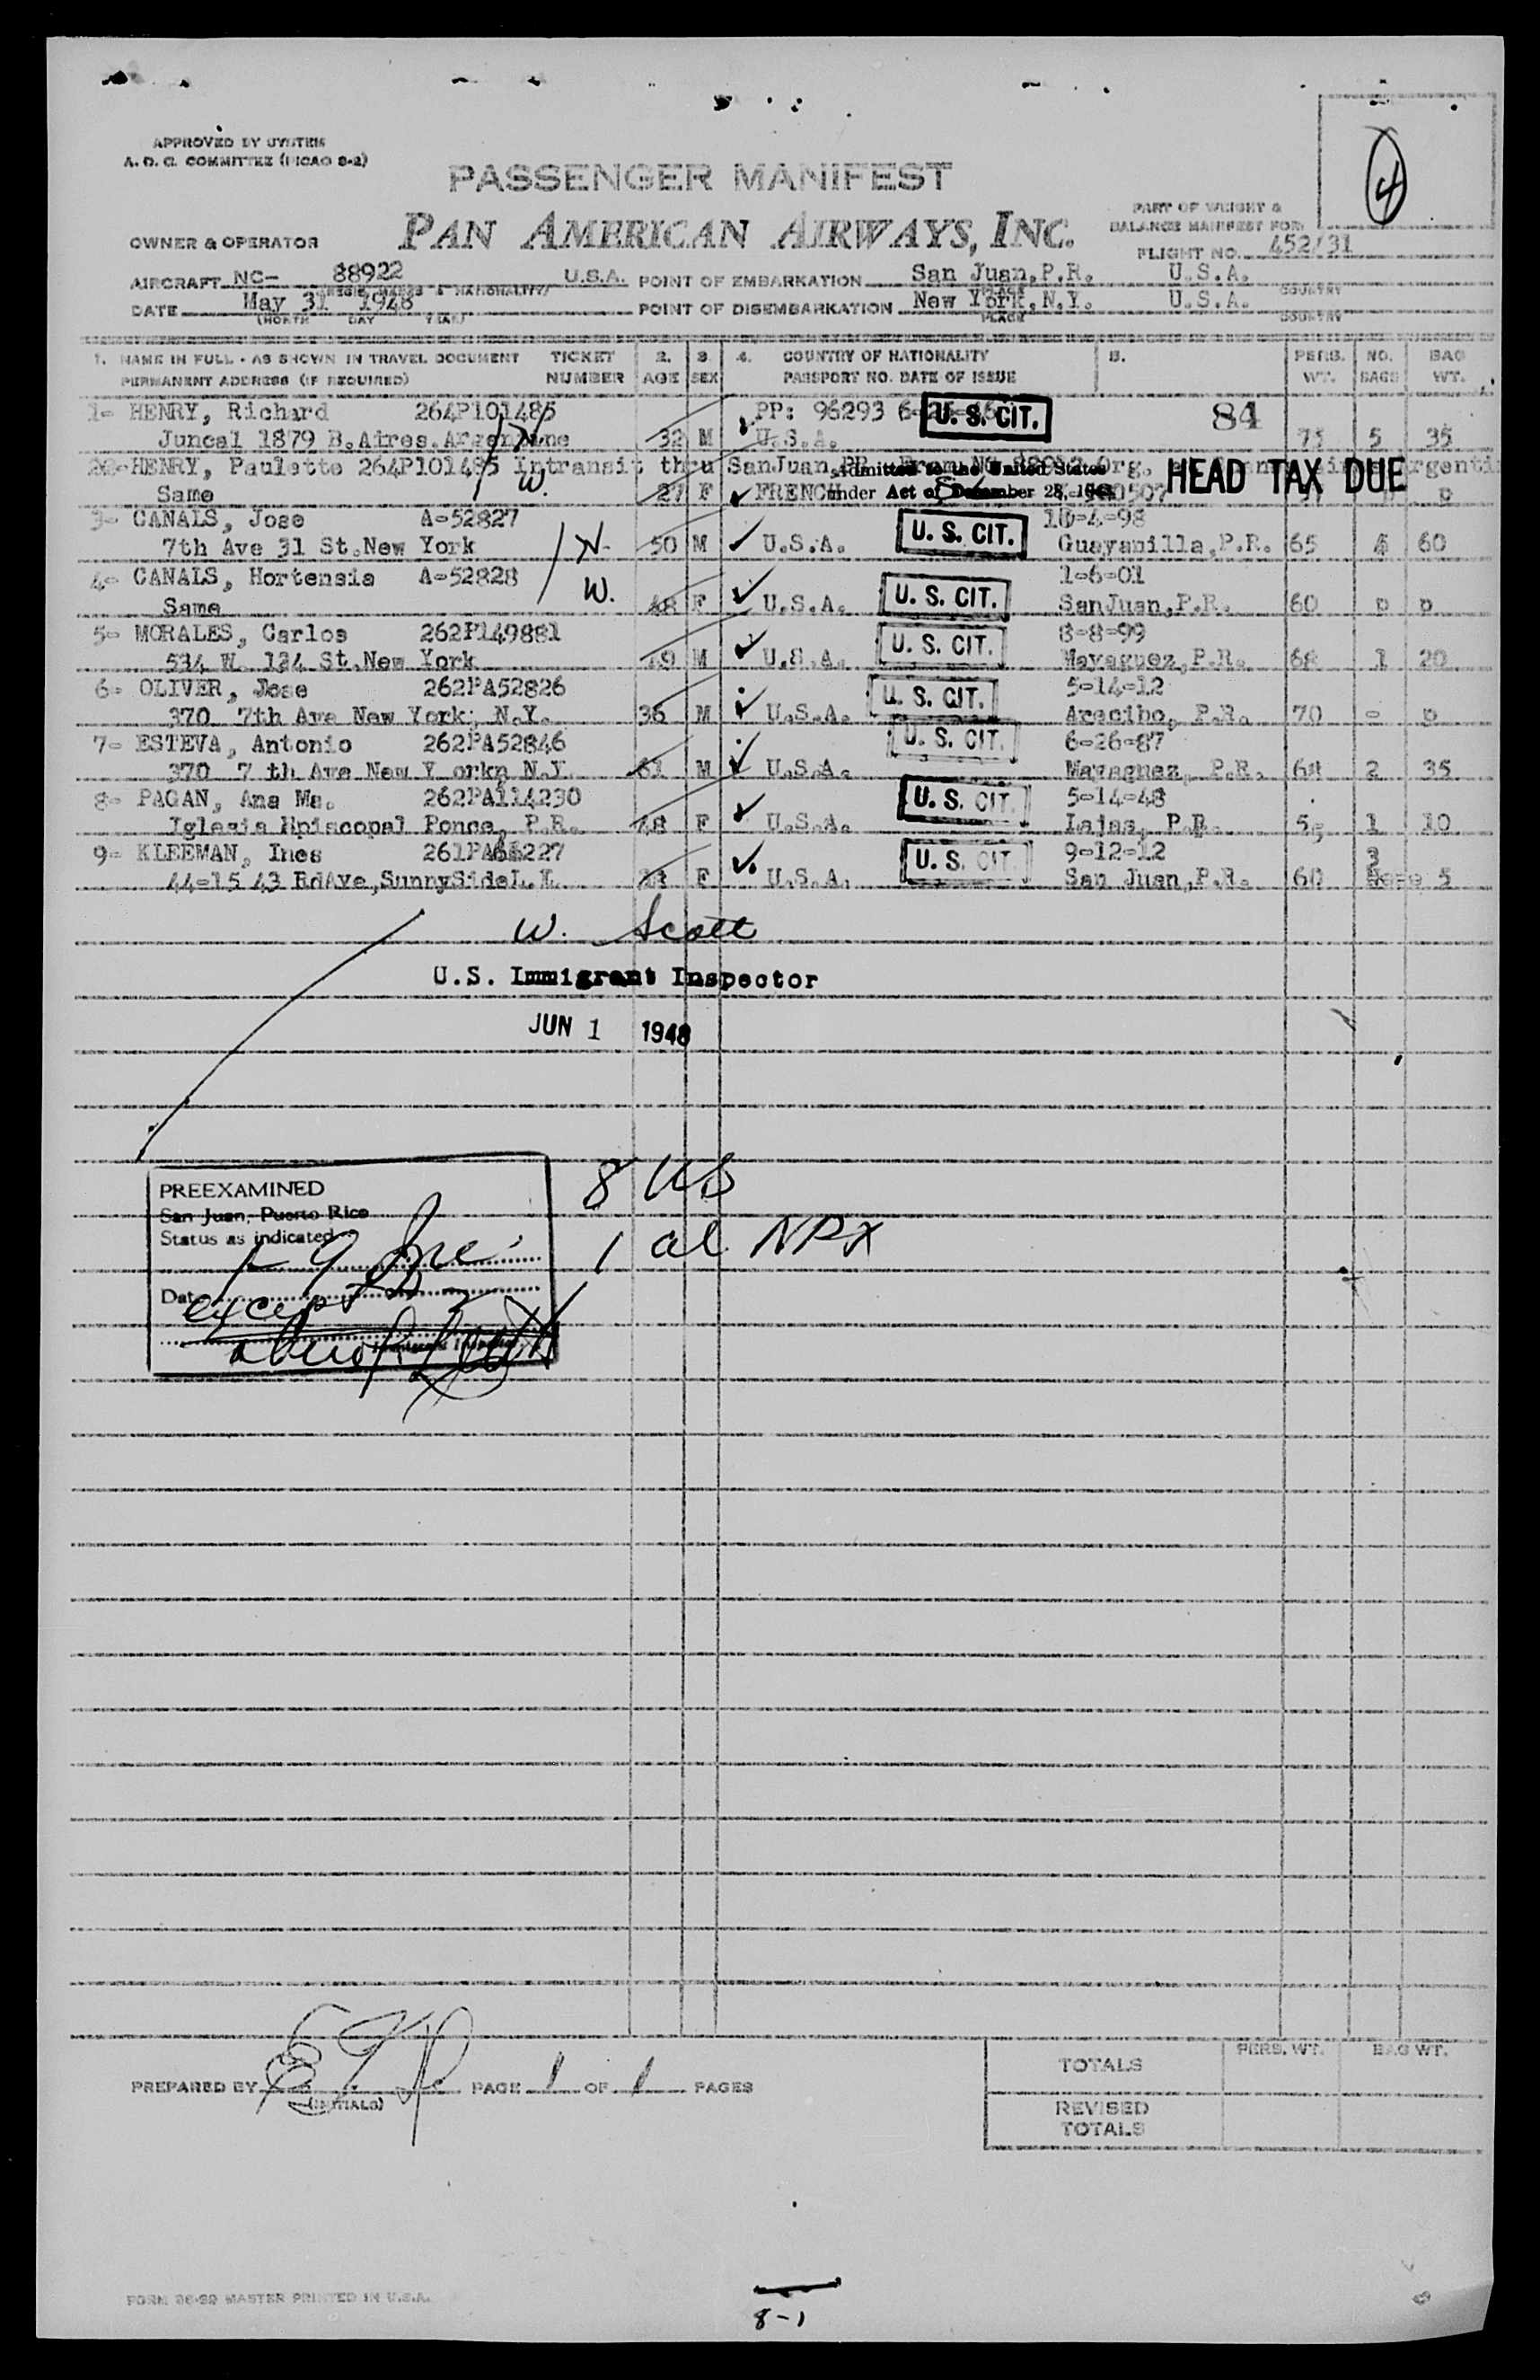 APPROVED BY SYSTEM
A. O. C. COMMITTEE (PICAO 8-2)
4
PASSENGER MANIFEST
PAN AMERICAN AIRWAYS, INC.
PART OF WEIGHT &
BALANCE MANIFEST FOR:
OWNER & OPERATOR
FLIGHT NO. 452/31
AIRCRAFT NC- 88922 U.S.A. POINT OF EMBARKATION San Juan, P.R. U.S.A.
MARKS & NATIONALITY) PLACE COUNTRY
DATE May 31 1948 POINT OF DISEMBARKATION New York, N.Y. U.S.A.
(MONTH DAY YEAR) PLACE COUNTRY
1. NAME IN FULL - AS SHOWN IN TRAVEL DOCUMENT TICKET 2. 3. 4. COUNTRY OF NATIONALITY 5. PERS. NO. BAG
PERMANENT ADDRESS (IF REQUIRED) NUMBER AGE SEX PASSPORT NO. DATE OF ISSUE WT. BAGS WT.
1- HENRY, Richard 264P101485 PP: 96293 U. S. CIT. 84
Juncal 1879 B.Aires. 32 M U.S.A. 75 5 35
HENRY, Paulette 264P101485 Intransit thru SanJuan,PR. From Admitted to the United States HEAD TAX DUE
W.
Same 27 F FRENCH under Act of December 28, p
3- CANALS, Jose A-52827 U. S. CIT. 10-4-98
7th Ave 31 St.New York N. 50 M U.S.A. Guayanilla,P.R. 65 60
4- CANALS, Hortensia A-52828 W. U. S. CIT. 1-6-01
Same 48 F U.S.A. SanJuan,P.R. 60 p p
5- MORALES, Carlos 262P149881 U. S. CIT. 8-8-99
534 W. 124 St.New York M U.S.A. Mayaguez,P.R. 68 1 20
6- OLIVER, Jose 262PA52826 U. S. CIT. 5-14-12
370 7th Ave New York, N.Y. 36 M U.S.A. Arecibo, P.R. 70 - p
7- ESTEVA, Antonio 262PA52846 U. S. CIT. 6-26-87
370 7 th Ave New Y orkn N.Y. 61 M U.S.A. Mayaguez, P.R. 68 2 35
8- PAGAN, Ana Ma. 262PA114230 U. S. CIT. 5-14-48
Iglesia Episcopal Ponce, P.R. F U.S.A. Lajas, P.R. 1 10
9- KLEEMAN, Ines U. S. CIT. 9-12-12
44-15 43 RdAve,SunnySideL.I. F U.S.A. San Juan,P.R. 60 5
W. Scott
U.S. Immigrant Inspector
JUN 1 1948
PREEXAMINED
San Juan, Puerto Rico
Status as indicated
1-9 Inc.
Date
except
8 US
1 al NPX
PREPARED BY PAGE 1 OF 1 PAGES
(INITIALS)
PERS. WT. BAG WT.
TOTALS
REVISED
TOTALS
FORM 96-99 MASTER PRINTED IN U.S.A.
8-1